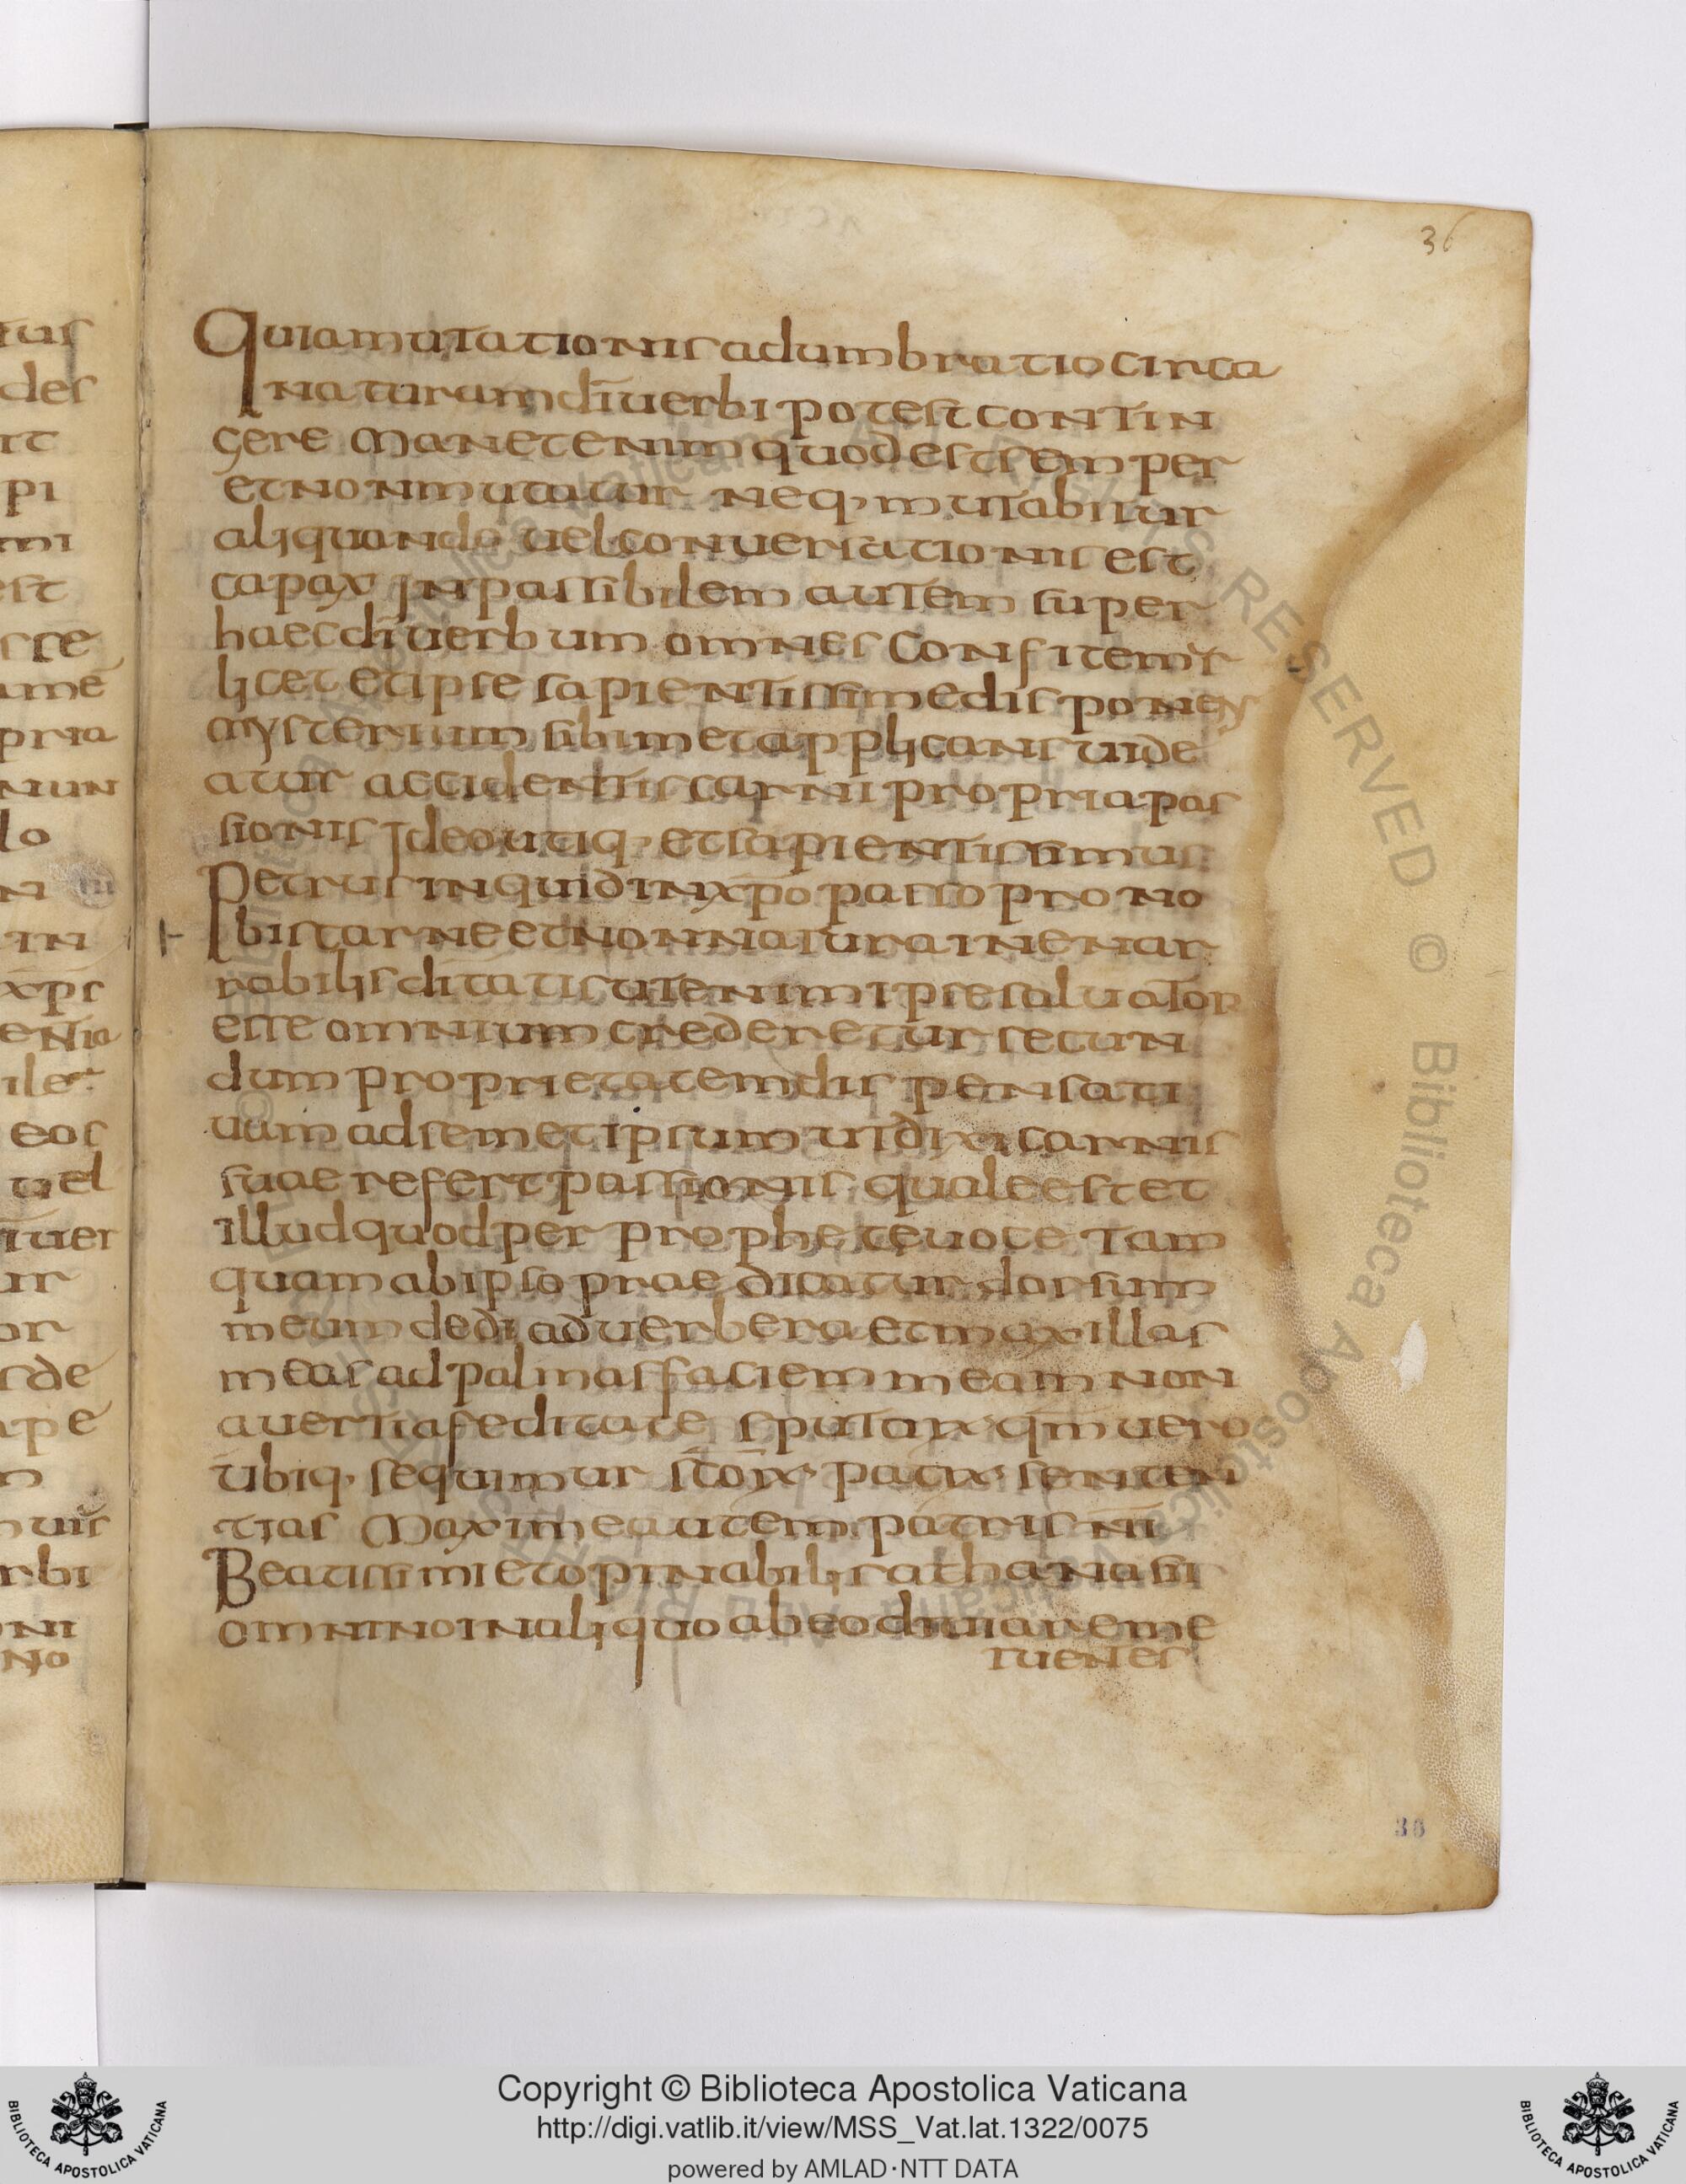 36
Quia mutationis adumbratio circa
naturam dī verbi potest contin
gere Manet enim quod est semper
et non mutatur neq· mutabitur
aliquando vel conversationis est
capax Inpassibilem autem super
haec dī verbum omnes confitemur
licet et ipse sapientissime disponens
mysterium sibimet applicans vide
atur accidentis carni propria pas
sionis Ideo utiq· et sapientissimus
Petrus inquid in xp̄o passo pro no
bis carne et non natura inenar
rabilis dītatis ut enim ipse salvator
esse omnium crederetur secun
dum proprietatem dispensati
vam ad semetipsum ut dixi carnis
suae refert passionis quale est et
illud quod per prophete voce tam
quam ab ipso praedicatur dorsum
meum dedi ad verbera et maxillas
meas ad palmas faciem meam non
averti a feditate sputorum qm̄ vero
ubiq· sequimur sc̄orum patrum senten
tias Maxime autem patris nī
Beatissimi et opinabilis athanasi
omnino in aliquo ab eo deviare me
tuentes
36
Copyright © Biblioteca Apostolica Vaticana
http://digi.vatlib.it/view/MSS_Vat.lat.1322/0075
powered by AMLAD·NTT DATA
BIBLIOTECA APOSTOLICA VATICANA
BIBLIOTECA APOSTOLICA VATICANA